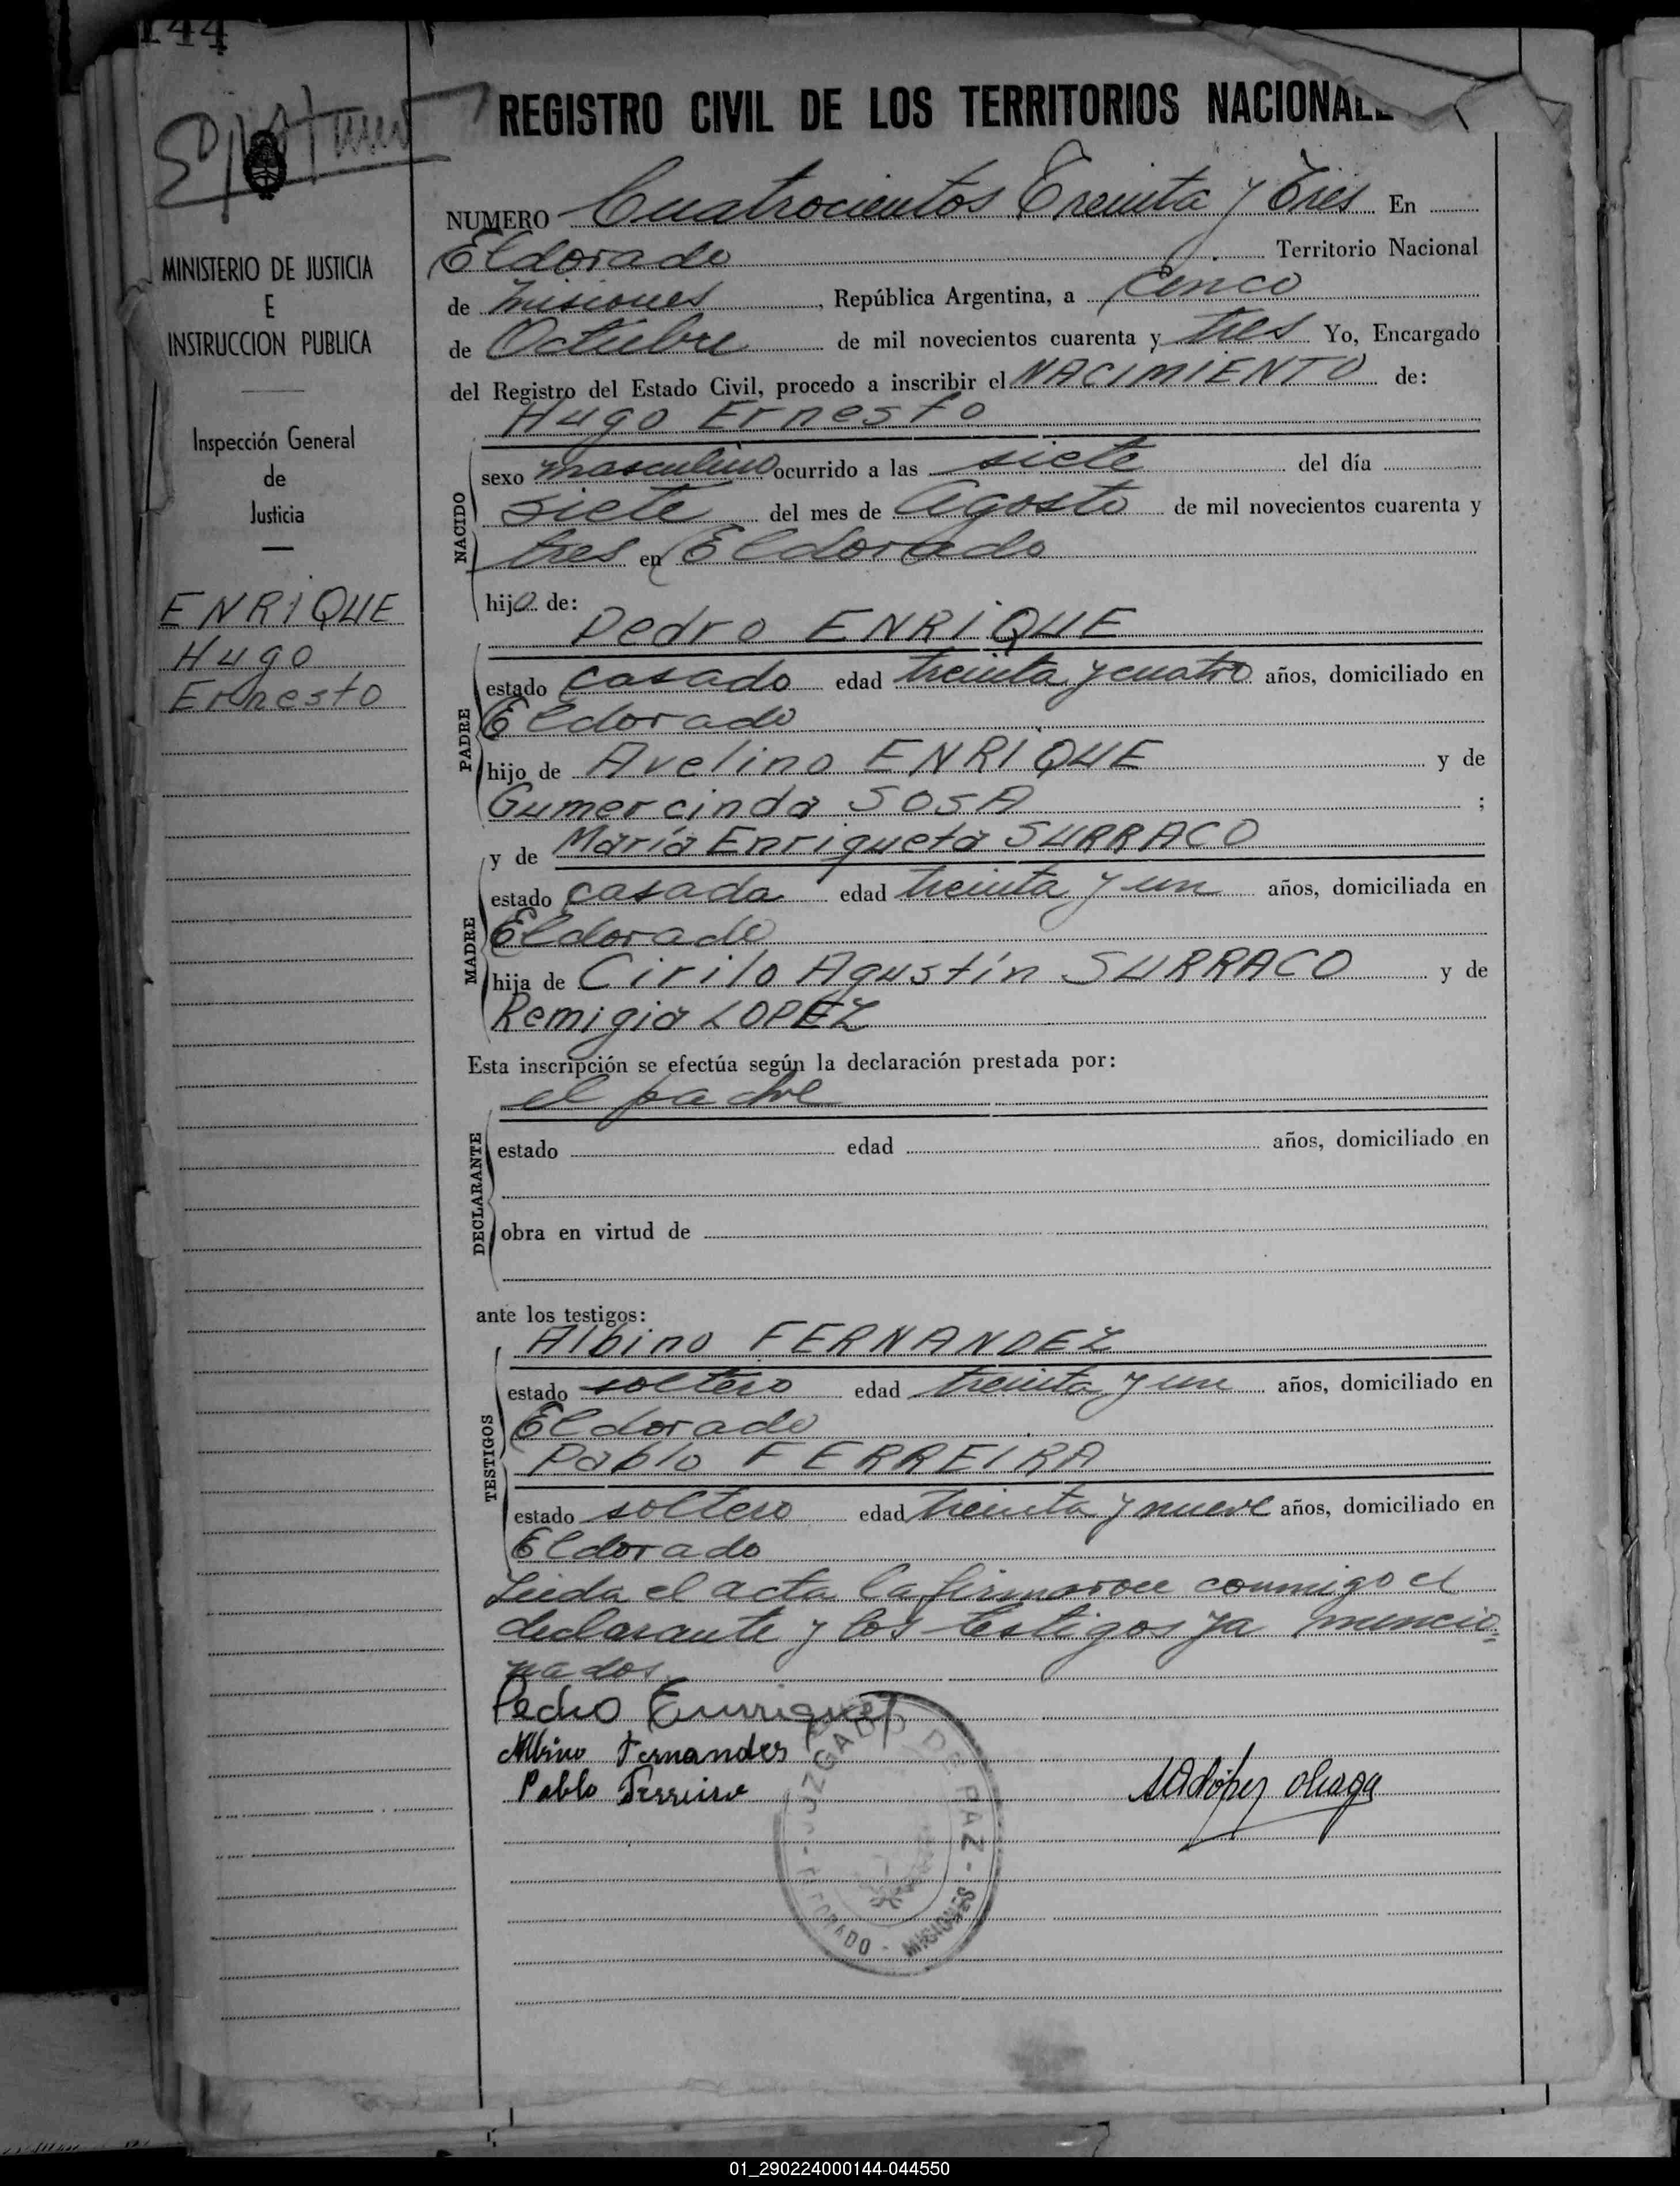 144
REGISTRO CIVIL DE LOS TERRITORIOS NACIONAL
NUMERO Cuatrocientos Treinta y Tres En
Eldorado Territorio Nacional
de Misiones, República Argentina, a Cinco
de Octubre de mil novecientos cuarenta y tres Yo, Encargado
del Registro del Estado Civil, procedo a inscribir el NACIMIENTO de:
Hugo Ernesto
NACIDO
sexo masculino ocurrido a las siete del día
siete del mes de Agosto de mil novecientos cuarenta y
tres en Eldorado
hijo de:
Pedro ENRIQUE
PADRE
estado casado edad treinta y cuatro años, domiciliado en
Eldorado
hijo de Avelino ENRIQUE y de
Gumercinda SOSA ;
y de María Enriqueta SURRACO
MADRE
estado casada edad treinta y un años, domiciliada en
Eldorado
hija de Cirilo Agustín SURRACO y de
Remigia LOPEZ
Esta inscripción se efectúa según la declaración prestada por:
el padre
DECLARANTE
estado edad años, domiciliado en
obra en virtud de
ante los testigos:
Albino FERNANDEZ
TESTIGOS
estado soltero edad treinta y un años, domiciliado en
Eldorado
Pablo FERREIRA
estado soltero edad treinta y nueve años, domiciliado en
Eldorado
Leida el acta la firmaron conmigo el
declarante y los testigos ya mencio=
nados
Pedro Enrrique
Albino Fernandes
Pablo Ferreira
JUZGADO DE PAZ - ELDORADO - MISIONES
MINISTERIO DE JUSTICIA
E
INSTRUCCION PUBLICA
Inspección General
de
Justicia
ENRIQUE
Hugo
Ernesto
01_290224000144-044550